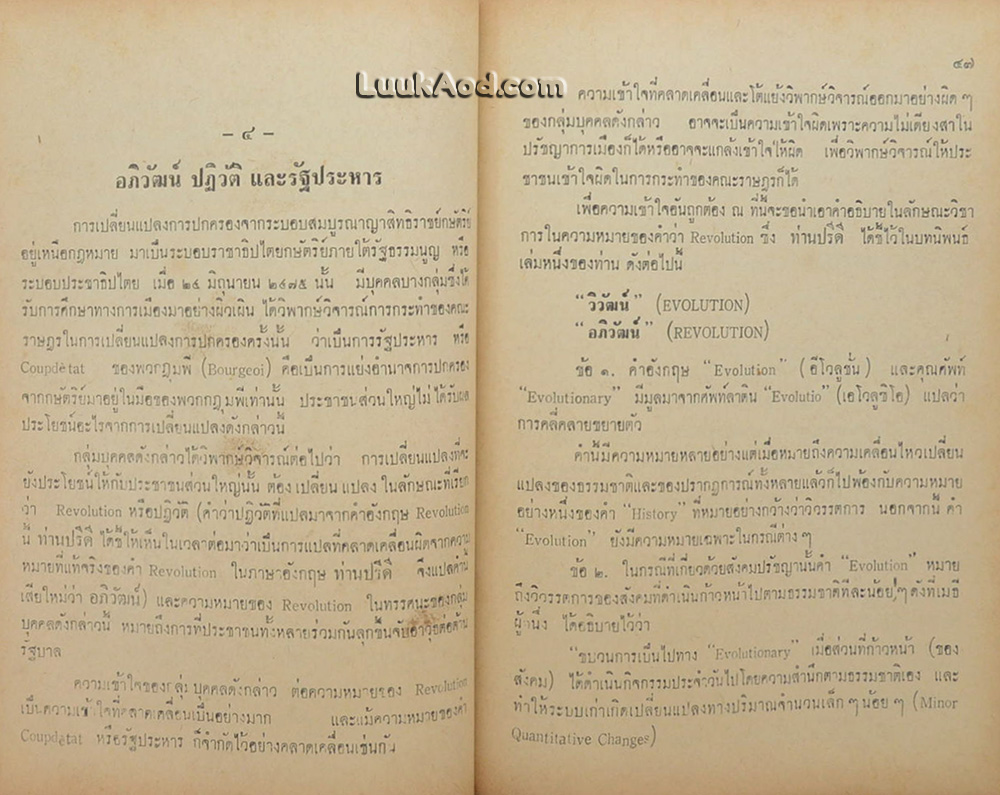 LuukAod.com
– ๔ –
อภิวัฒน์ ปฏิวัติ และรัฐประหาร
การเปลี่ยนแปลงการปกครองจากระบอบสมบูรณาญาสิทธิราชย์กษัตริย์
อยู่เหนือกฎหมาย มาเป็นระบอบราชาธิปไตยกษัตริย์ภายใต้รัฐธรรมนูญ หรือ
ระบอบประชาธิปไตย เมื่อ ๒๔ มิถุนายน ๒๔๗๕ นั้น มีบุคคลบางกลุ่มซึ่งได้
รับการศึกษาทางการเมืองมาอย่างผิวเผิน ได้วิพากษ์วิจารณ์การกระทำของคณะ
ราษฎรในการเปลี่ยนแปลงการปกครองครั้งนั้น ว่าเป็นการรัฐประหาร หรือ
Coupdètat ของพวกฎุมพี (Bourgeoi) คือเป็นการแย่งอำนาจการปกครอง
จากกษัตริย์มาอยู่ในมือของพวกกฎุมพีเท่านั้น ประชาชนส่วนใหญ่ไม่ได้รับผล
ประโยชน์อะไรจากการเปลี่ยนแปลงดังกล่าวนี้
กลุ่มบุคคลดังกล่าวได้วิพากษ์วิจารณ์ต่อไปว่า การเปลี่ยนแปลงที่จะ
ยังประโยชน์ให้กับประชาชนส่วนใหญ่นั้น ต้อง เปลี่ยน แปลง ในลักษณะที่เรียก
ว่า Revolution หรือปฏิวัติ (คำว่าปฏิวัติที่แปลมาจากคำอังกฤษ Revolution
นี้ ท่านปรีดี ได้ชี้ให้เห็นในเวลาต่อมาว่าเป็นการแปลที่คลาดเคลื่อนผิดจากความ
หมายที่แท้จริงของคำ Revolution ในภาษาอังกฤษ ท่านปรีดี จึงแปลคำนี้
เสียใหม่ว่า อภิวัฒน์) และความหมายของ Revolution ในทรรศนะของกลุ่ม
บุคคลดังกล่าวนี้ หมายถึงการที่ประชาชนทั้งหลายร่วมกันลุกขึ้นจับอาวุธต่อต้าน
รัฐบาล
ความเข้าใจของกลุ่มบุคคลดังกล่าว ต่อความหมายของ Revolution
เป็นความเข้าใจที่คลาดเคลื่อนเป็นอย่างมาก และแม้ความหมายของคำ
Coupdètat หรือรัฐประหาร ก็จำกัดไว้อย่างคลาดเคลื่อนเช่นกัน
๔๗
ความเข้าใจที่คลาดเคลื่อนและโต้แย้งวิพากษ์วิจารณ์ออกมาอย่างผิด ๆ
ของกลุ่มบุคคลดังกล่าว อาจจะเป็นความเข้าใจผิดเพราะความไม่เดียงสาใน
ปรัชญาการเมืองก็ได้หรืออาจจะแกล้งเข้าใจให้ผิด เพื่อวิพากษ์วิจารณ์ให้ประ
ชาชนเข้าใจผิดในการกระทำของคณะราษฎรก็ได้
เพื่อความเข้าใจอันถูกต้อง ณ ที่นี้จะขอนำเอาคำอธิบายในลักษณะวิชา
การในความหมายของคำว่า Revolution ซึ่ง ท่านปรีดี ได้ชี้ไว้ในบทนิพนธ์
เล่มหนึ่งของท่าน ดังต่อไปนี้
"วิวัฒน์" (EVOLUTION)
"อภิวัฒน์" (REVOLUTION)
ข้อ ๑. คำอังกฤษ "Evolution" (อีโวลูชั่น) และคุณศัพท์
"Evolutionary" มีมูลมาจากศัพท์ลาติน "Evolutio" (เอโวลูชิโอ) แปลว่า
การคลี่คลายขยายตัว
คำนี้มีความหมายหลายอย่างแต่เมื่อหมายถึงความเคลื่อนไหวเปลี่ยน
แปลงของธรรมชาติและของปรากฏการณ์ทั้งหลายแล้วก็ไปพ้องกับความหมาย
อย่างหนึ่งของคำ "History" ที่หมายอย่างกว้างว่าวิวรรตการ นอกจากนี้ คำ
"Evolution" ยังมีความหมายเฉพาะในกรณีต่าง ๆ
ข้อ ๒. ในกรณีที่เกี่ยวด้วยสังคมปรัชญานั้นคำ "Evolution" หมาย
ถึงวิวรรตการของสังคมที่ดำเนินก้าวหน้าไปตามธรรมชาติทีละน้อย ๆ ดังที่เมธี
ผู้หนึ่ง ได้อธิบายไว้ว่า
"ขบวนการเป็นไปทาง "Evolutionary" เมื่อส่วนที่ก้าวหน้า (ของ
สังคม) ได้ดำเนินกิจกรรมประจำวันไปโดยความสำนึกตามธรรมชาติเอง และ
ทำให้ระบบเก่าเกิดเปลี่ยนแปลงทางปริมาณจำนวนเล็ก ๆ น้อย ๆ (Minor
Quantitative Changes)